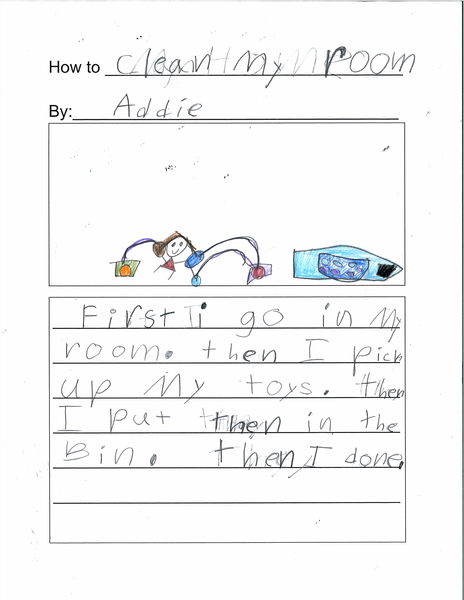 How to clean my room
By: Addie
First i go in My
room. then I pick
up My toys. then
I put then in the
Bin. then I done.